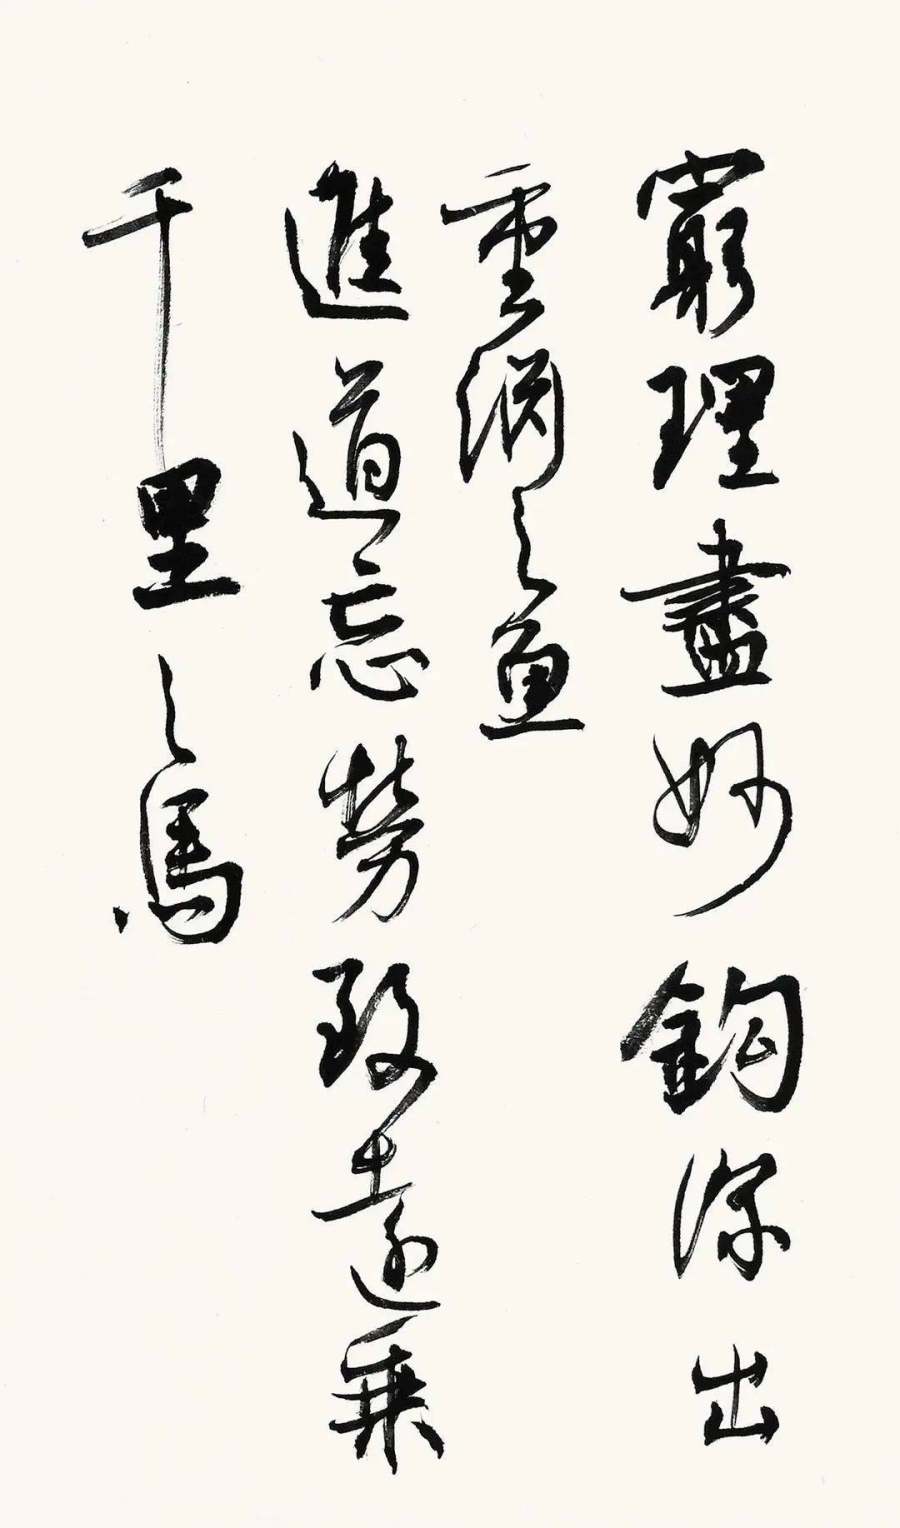 窮理盡妙鈎深出
重淵之魚
進道忘勞致遠乘
千里之馬